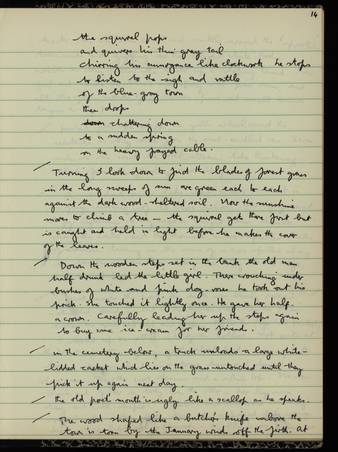 14
the squirrel pops
and quivers his thin gray tail
chirring his annoyance like clockwork he stops
to listen to the sigh and rattle
of the blue-gray town
then drops
down chattering down
to a sudden spring
on the heavy frayed cable.
Turning I look down to find the blades of forest grass
in the long sweeps of sun are green each to each
against the dark wood-sheltered soil. Now the sunshine
moves to climb a tree — the squirrel gets there first but
is caught and held in light before he makes the cover
of the leaves.
Down the wooden steps set in the bank the old man
half drunk led the little girl. There crouching under
bushes of white and pink dog roses he took out his
prick. She touched it lightly once. He gave her half
a crown. Carefully leading her up the steps again
to buy one ice-cream for her friends.
in the cemetery below, a truck unloads a large white-
lidded casket which lies on the grass untouched until they
pick it up again next day.
the old poet's mouth is ugly like a scallop as he speaks.
The wood shaped like a butcher's knife above the
town is torn by the January winds off the firth. At